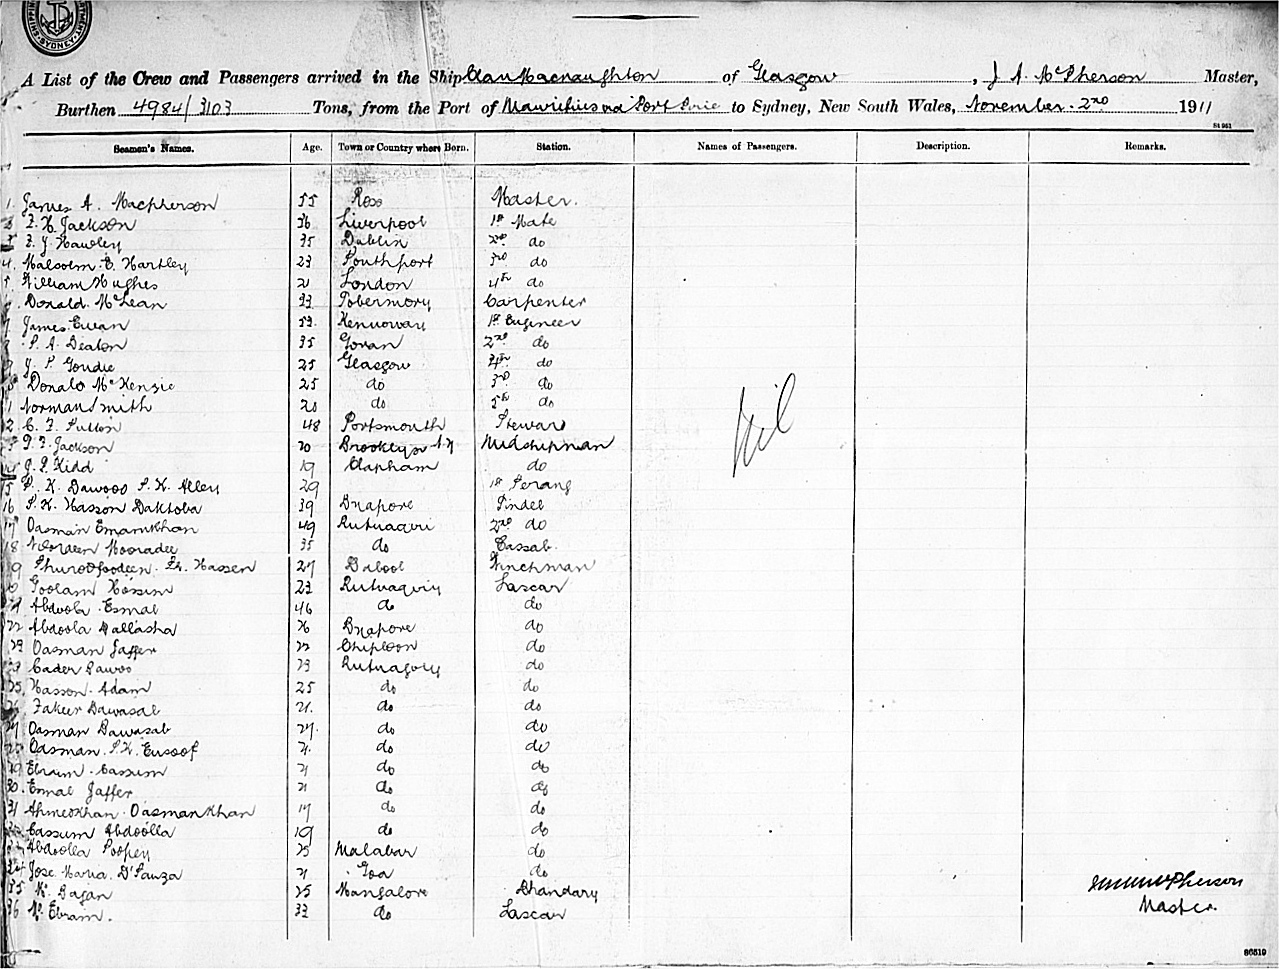 SYDNEY
A List of the Crew and Passengers arrived in the Ship Clan Macnaughton of Glasgow, J A McPherson Master,
Burthen 4984/3103 Tons, from the Port of Mauritius via Port Pirie to Sydney, New South Wales, November 2nd 1911
St 961
Seamen's Names. Age. Town or Country where Born. Station. Names of Passengers. Description. Remarks.
1 James A. Macpherson 55 Ross Master.
2 F. H. Jackson 36 Liverpool 1st Mate
3 F. J. Hawley 35 Dublin 2nd do
4. Malcolm. E. Hartley 23 Southport 3rd do
5 William Hughes 21 London 4th do
Donald McLean 33 Tobermory Carpenter
7 James Ewan 53. Kennoway 1st Engineer
8 S. A. Deaton 35 Govan 2nd do
9 J. S. Goudie 25 Glasgow 4th do
10 Donald McKenzie 25 do 3rd do
11 Norman Smith 20 do 5th do
12 C. F. Sutton 48 Portsmouth Steward
13 P. F. Jackson 20 Brooklyn N.Y Midshipman
14 J. S. Kidd 19 Clapham do
15 S. K. Dawood S. K. Alley 29 1st Serang
16 S. K. Hasson Daktoba 39 Bnapore Tindel
17 Oasman Emamkhan 49 Rutnageri 2nd do
18 Nooradeen Mooradee 35 do Cassab.
19 Hassen 27 Dabool Winchman
20 Goolam Hossim 23 Rutnagiry Lascar
21 Abdoola Esmal 46 do do
22 Abdoola Dallasha 26 Bnapore do
23 Oasman Jaffer 22 Chiploon do
24 Cader Dawood 23 Rutnagiry do
25. Hasson Adam 25 do do
26 Fakeer Dawasab 21. do do
27 Oasman Dawasab 27. do do
28 Oasman. S. K. Eusoof 21. do do
29 Ebram. Cassum 21 do do
30. Esmal Jaffer 21 do do
31 Ahmedkhan Oasmankhan 17 do do
32 Cassum Abdoolla 19 do do
33 Abdoolla Poopey 25 Malabar do
34 Jose Maria D'Sauza 21 Goa do
35 K. Dajan 25 Mangalore Bhandary
36 M. Ebraim. 33 do Lascar
Nil
McPherson
Master.
86519